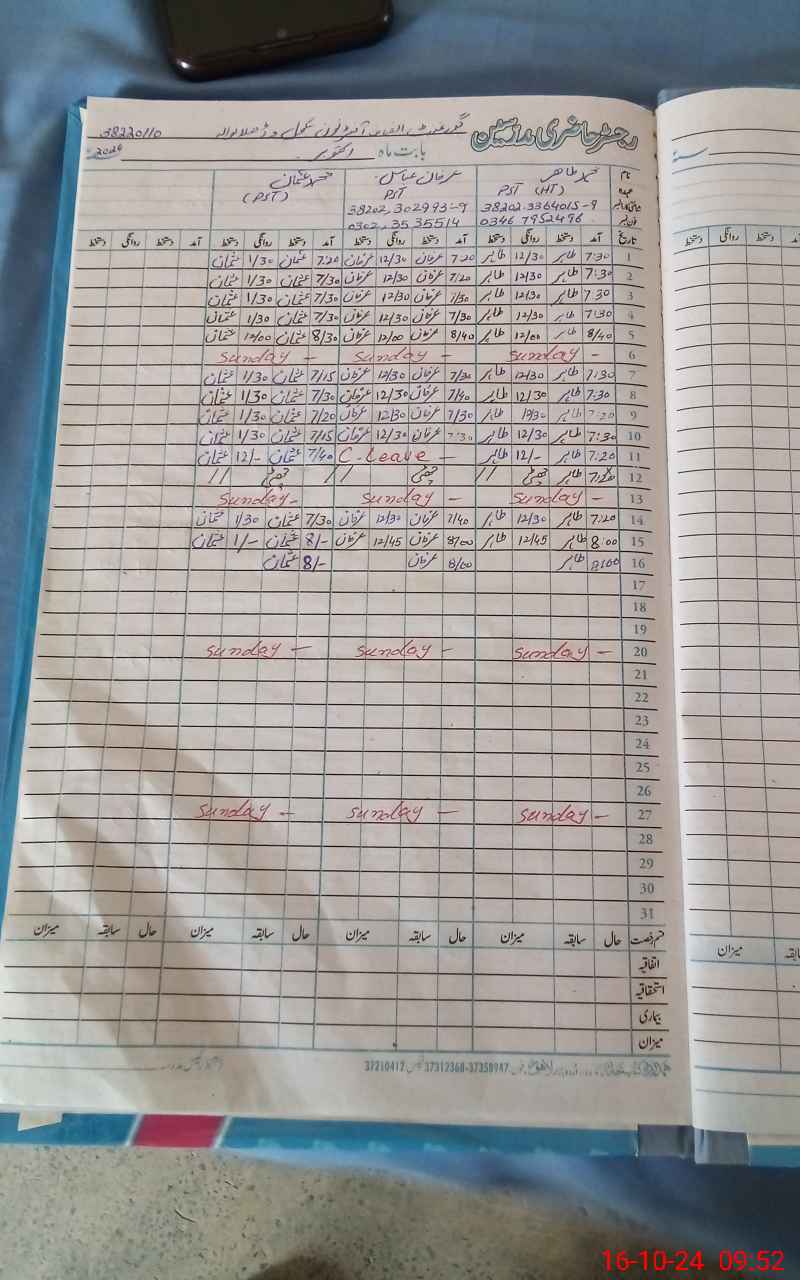 رجسٹر حاضری مدرسین گورنمنٹ سکول 38220110
بابت ماہ اکتوبر 2024ء
نام محمد طاہر عرفان عباس محمد عثمان
عہدہ PST (HT) PST (PST)
38202-3364015-9 38202,302993-9
0346 7952496 0302,3535514
تاریخ آمد دستخط روانگی دستخط آمد دستخط روانگی دستخط آمد دستخط روانگی دستخط آمد دستخط روانگی دستخط
1 7:30 طاہر 12/30 طاہر 7:20 عرفان 12/30 عرفان 7:20 عثمان 1/30 عثمان
2 7:30 طاہر 12/30 طاہر 7/20 عرفان 12/30 عرفان 7/30 عثمان 1/30 عثمان
3 7:30 طاہر 12/30 طاہر 7/30 عرفان 12/30 عرفان 7/30 عثمان 1/30 عثمان
4 7:30 طاہر 12/30 طاہر 7/30 عرفان 12/30 عرفان 7/30 عثمان 1/30 عثمان
5 8/40 طاہر 12/00 طاہر 8/40 عرفان 12/00 عرفان 8/30 عثمان 12/00 عثمان
6 Sunday – Sunday – Sunday –
7 7:30 طاہر 12/30 طاہر 7/30 عرفان 12/30 عرفان 7/15 عثمان 1/30 عثمان
8 7:30 طاہر 12/30 طاہر 7/40 عرفان 12/30 عرفان 7/30 عثمان 1/30 عثمان
9 7:20 طاہر طاہر 7/30 عرفان 12/30 عرفان 7/20 عثمان 1/30 عثمان
10 7:30 طاہر 12/30 طاہر 7:30 عرفان 12/30 عرفان 7/15 عثمان 1/30 عثمان
11 7:20 طاہر 12/- طاہر C.Leave – 7/40 عثمان 12/- عثمان
12 7:20 طاہر چھٹی // چھٹی // چھٹی //
13 Sunday – Sunday – Sunday –
14 7:20 طاہر 12/30 طاہر 7/40 عرفان 12/30 عرفان 7/30 عثمان 1/30 عثمان
15 8:00 طاہر 12/45 طاہر 8/00 عرفان 12/45 عرفان 8/- عثمان 1/- عثمان
16 8:00 طاہر 8/00 عرفان 8/- عثمان
17
18
19
20 Sunday – Sunday – Sunday –
21
22
23
24
25
26
27 Sunday – Sunday – Sunday –
28
29
30
31
قسم رخصت حال سابقہ میزان حال سابقہ میزان حال سابقہ میزان حال سابقہ میزان
اتفاقیہ
استحقاقیہ
بیماری
میزان
37358947-37312368 37210417
دستخط روانگی دستخط
میزان
16-10-24 09:52